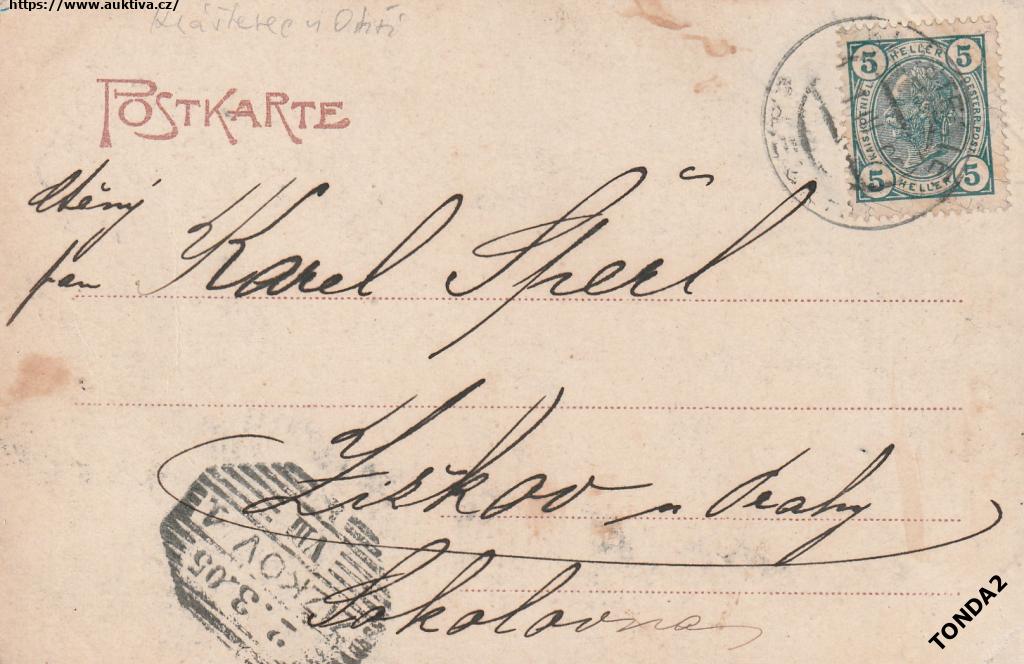 https://www.auktiva.cz/
Klášterec n Ohří
POSTKARTE
5 HELLER 5
KAIS. KOENIGL. OESTERR. POST
5 HELLER 5
Ctěný
pan Karel Šperl
Žižkov u Prahy
Sokolovna
ŽIŽKOV 1
VIII
3.05
TONDA2